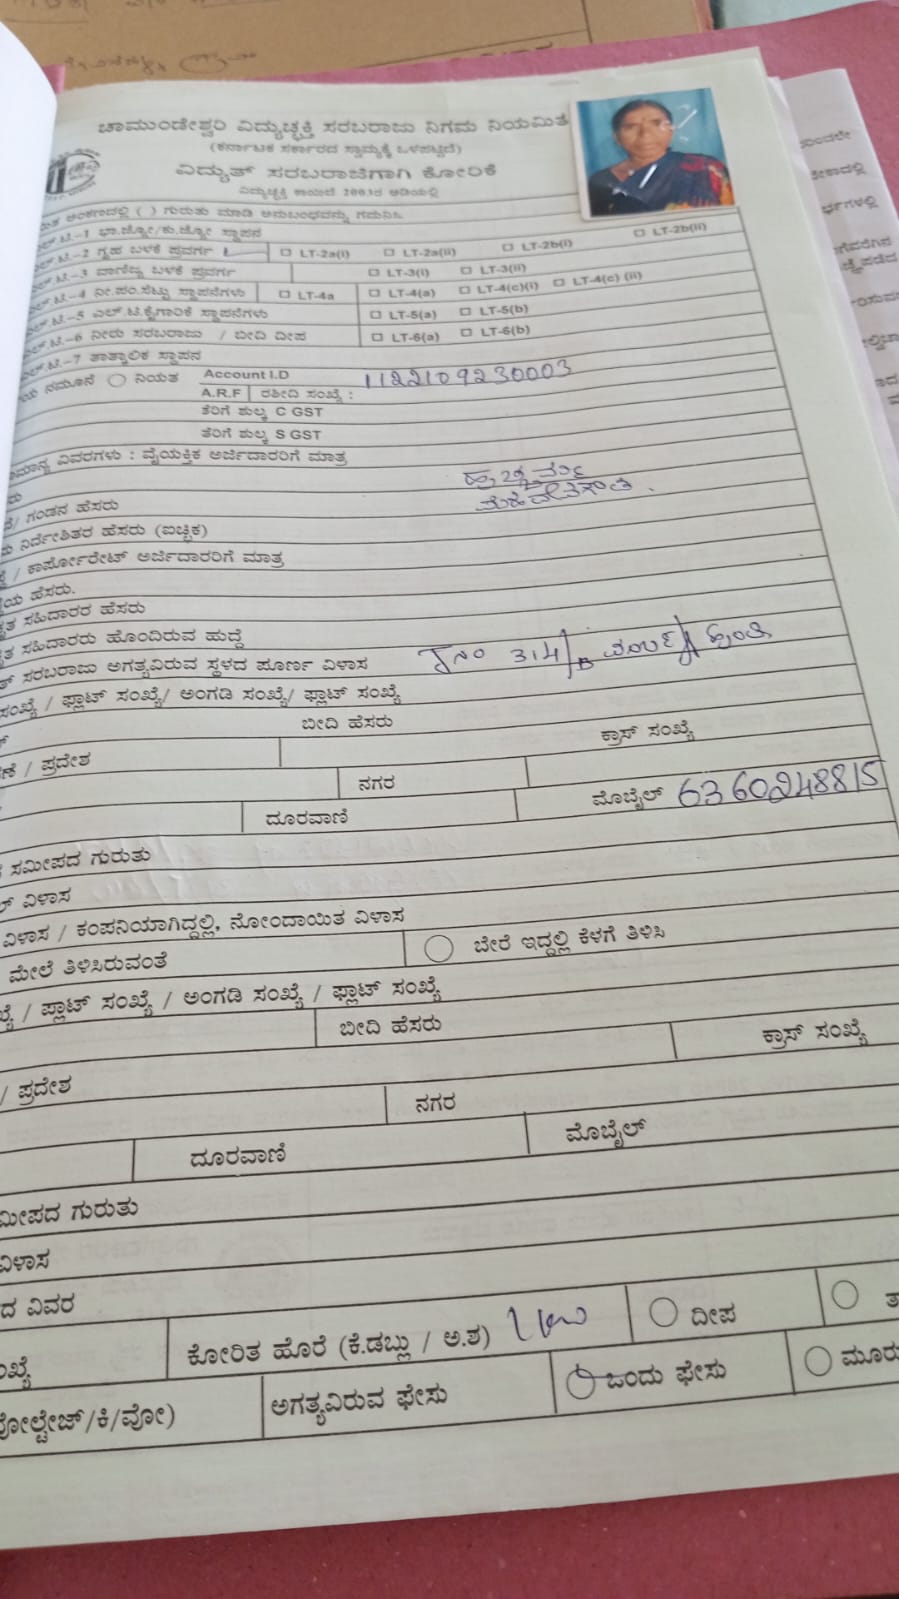 ಚಾಮುಂಡೇಶ್ವರಿ ವಿದ್ಯುಚ್ಛಕ್ತಿ ಸರಬರಾಜು ನಿಗಮ ನಿಯಮಿತ
(ಕರ್ನಾಟಕ ಸರ್ಕಾರದ ಸ್ವಾಮ್ಯಕ್ಕೆ ಒಳಪಟ್ಟಿದೆ)
ವಿದ್ಯುತ್ ಸರಬರಾಜಿಗಾಗಿ ಕೋರಿಕೆ
ವಿದ್ಯುಚ್ಛಕ್ತಿ ಕಾಯಿದೆ 2003ರ ಅಡಿಯಲ್ಲಿ
ಅಂಕಣದಲ್ಲಿ ( ) ಗುರುತು ಮಾಡಿ ಅನುಬಂಧವನ್ನು ಗಮನಿಸಿ
ಎಲ್.ಟಿ.-1 ಭಾ.ಜ್ಯೋ/ಕು.ಜ್ಯೋ ಸ್ಥಾಪನ
ಎಲ್.ಟಿ.-2 ಗೃಹ ಬಳಕೆ ಪ್ರವರ್ಗ LT-2a(i) LT-2a(ii) LT-2b(i) LT-2b(ii)
ಎಲ್.ಟಿ.-3 ವಾಣಿಜ್ಯ ಬಳಕೆ ಪ್ರವರ್ಗ LT-3(i) LT-3(ii)
ಎಲ್.ಟಿ.-4 ನೀ.ಪಂ.ಸೆಟ್ಟು ಸ್ಥಾಪನೆಗಳು LT-4a LT-4(a) LT-4(c)(i) LT-4(c) (ii)
ಎಲ್.ಟಿ.-5 ಎಲ್.ಟಿ.ಕೈಗಾರಿಕೆ ಸ್ಥಾಪನೆಗಳು LT-5(a) LT-5(b)
ಎಲ್.ಟಿ.-6 ನೀರು ಸರಬರಾಜು / ಬೀದಿ ದೀಪ LT-6(a) LT-6(b)
ಎಲ್.ಟಿ.-7 ತಾತ್ಕಾಲಿಕ ಸ್ಥಾಪನ
ನಮೂನೆ ನಿಯತ Account I.D 1122109230003
A.R.F ರಶೀದಿ ಸಂಖ್ಯೆ :
ತೆರಿಗೆ ಶುಲ್ಕ C GST
ತೆರಿಗೆ ಶುಲ್ಕ S GST
ವಿವರಗಳು : ವೈಯಕ್ತಿಕ ಅರ್ಜಿದಾರರಿಗೆ ಮಾತ್ರ
ಗಂಡನ ಹೆಸರು
ನಿರ್ದೇಶಿತರ ಹೆಸರು (ಐಚ್ಛಿಕ)
/ ಕಾರ್ಪೋರೇಟ್ ಅರ್ಜಿದಾರರಿಗೆ ಮಾತ್ರ
ಹೆಸರು.
ಸಹಿದಾರರ ಹೆಸರು
ಸಹಿದಾರರು ಹೊಂದಿರುವ ಹುದ್ದೆ
ಸರಬರಾಜು ಅಗತ್ಯವಿರುವ ಸ್ಥಳದ ಪೂರ್ಣ ವಿಳಾಸ 314/
ಸಂಖ್ಯೆ / ಫ್ಲಾಟ್ ಸಂಖ್ಯೆ/ ಅಂಗಡಿ ಸಂಖ್ಯೆ/ ಫ್ಲಾಟ್ ಸಂಖ್ಯೆ
ಬೀದಿ ಹೆಸರು
/ ಪ್ರದೇಶ ಕ್ರಾಸ್ ಸಂಖ್ಯೆ
ನಗರ
ದೂರವಾಣಿ ಮೊಬೈಲ್ 6360248815
ಸಮೀಪದ ಗುರುತು
ವಿಳಾಸ
ವಿಳಾಸ / ಕಂಪನಿಯಾಗಿದ್ದಲ್ಲಿ, ನೋಂದಾಯಿತ ವಿಳಾಸ
ಮೇಲೆ ತಿಳಿಸಿರುವಂತೆ ಬೇರೆ ಇದ್ದಲ್ಲಿ ಕೆಳಗೆ ತಿಳಿಸಿ
/ ಪ್ಲಾಟ್ ಸಂಖ್ಯೆ / ಅಂಗಡಿ ಸಂಖ್ಯೆ / ಫ್ಲಾಟ್ ಸಂಖ್ಯೆ
ಬೀದಿ ಹೆಸರು
/ ಪ್ರದೇಶ ಕ್ರಾಸ್ ಸಂಖ್ಯೆ
ನಗರ
ದೂರವಾಣಿ ಮೊಬೈಲ್
ಗುರುತು
ವಿಳಾಸ
ವಿವರ
ಕೋರಿತ ಹೊರೆ (ಕೆ.ಡಬ್ಲ್ಯು / ಅ.ಶ) ದೀಪ
ಅಗತ್ಯವಿರುವ ಫೇಸು ಒಂದು ಫೇಸು ಮೂರು